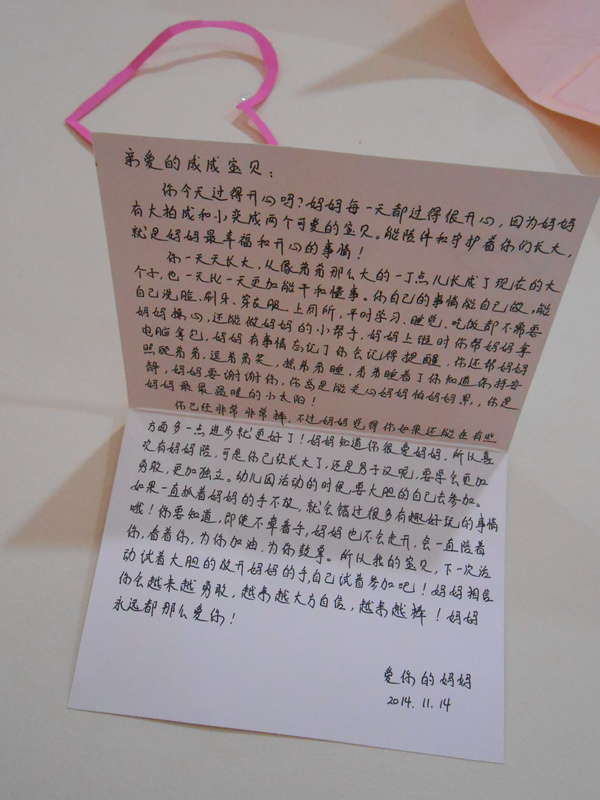 亲爱的成成宝贝：
你今天过得开心吗？妈妈每一天都过得很开心，因为妈妈
有大拍成和小奕成两个可爱的宝贝。能陪伴和守护着你们长大，
就是妈妈最幸福和开心的事情！
你一天天长大，从像弟弟那么大的一丁点儿长成了现在的大
个子，也一天比一天更加能干和懂事。你自己的事情能自己做，能
自己洗脸、刷牙、穿衣服、上厕所，平时学习、睡觉、吃饭都不需要
妈妈操心，还能做妈妈的小帮手，妈妈上班时你帮妈妈拿
电脑拿包，妈妈有事情忘记了你会记得提醒，你还帮妈妈
照顾弟弟，逗弟弟笑，摇弟弟睡，弟弟睡着了你知道保持安
静，妈妈要谢谢你，你总是能关心妈妈怕妈妈累，你是
妈妈最最温暖的小太阳！
你已经非常非常棒，不过妈妈觉得你如果还能在有些
方面多一点进步就更好了！妈妈知道你很爱妈妈，所以喜
欢有妈妈陪，可是你已经长大了，还是男子汉呢，要学会更加
勇敢，更加独立。幼儿园活动的时候，要大胆的自己去参加。
如果一直抓着妈妈的手不放，就会错过很多有趣好玩的事情
哦！你要知道，即使不牵着手，妈妈也不会走开，会一直陪着
你，看着你，为你加油，为你鼓掌。所以我的宝贝，下一次活
动试着大胆的放开妈妈的手，自己试着参加吧！妈妈相信
你会越来越勇敢，越来越大方自信，越来越棒！妈妈
永远都那么爱你！
爱你的妈妈
2014.11.14